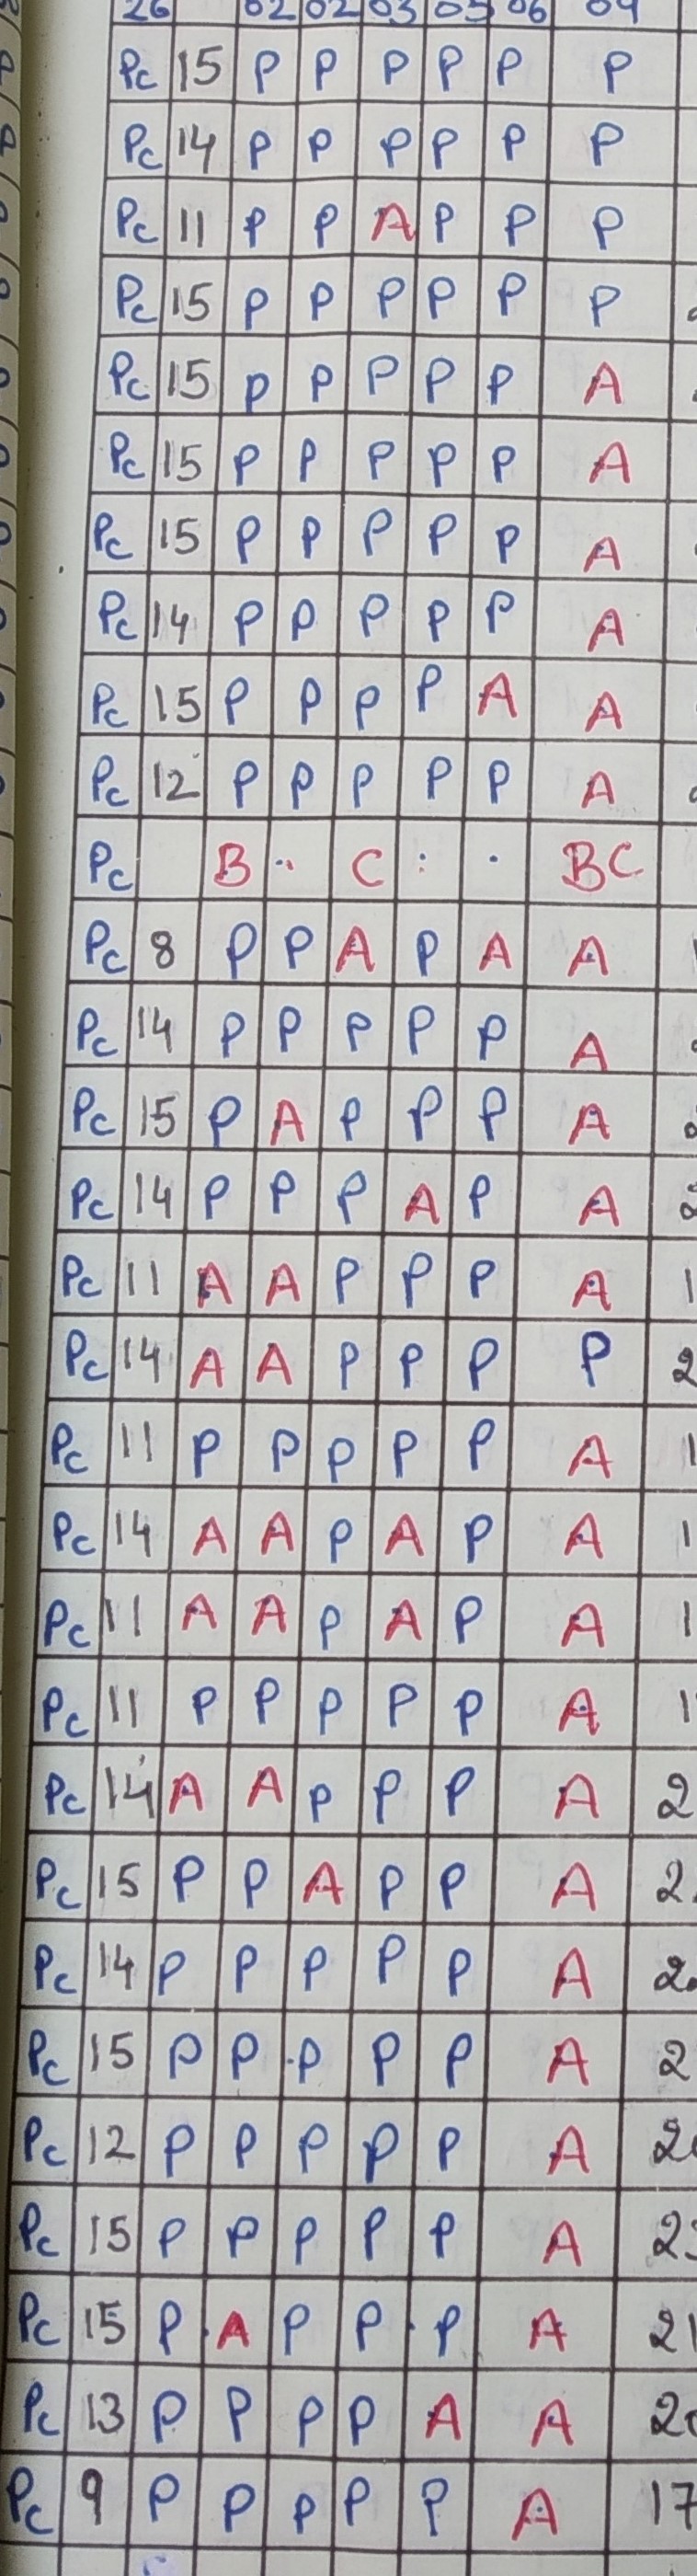 26 02 02 03 05 06 09
Pc 15 P P P P P P
Pc 14 P P P P P P
Pc 11 P P A P P P
Pc 15 P P P P P P
Pc 15 P P P P P A
Pc 15 P P P P P A
Pc 15 P P P P P A
Pc 14 P P P P P A
Pc 15 P P P P A A
Pc 12 P P P P P A
Pc B .. C : . BC
Pc 8 P P A P A A
Pc 14 P P P P P A
Pc 15 P A P P P A
Pc 14 P P P A P A
Pc 11 A A P P P A 1
Pc 14 A A P P P P 2
Pc 11 P P P P P A 1
Pc 14 A A P A P A 1
Pc 11 A A P A P A 1
Pc 11 P P P P P A 1
Pc 14 A A P P P A 2
Pc 15 P P A P P A 2
Pc 14 P P P P P A 2
Pc 15 P P P P P A 2
Pc 12 P P P P P A 2
Pc 15 P P P P P A 2
Pc 15 P A P P P A 21
Pc 13 P P P P A A 2
Pc 9 P P P P P A 17